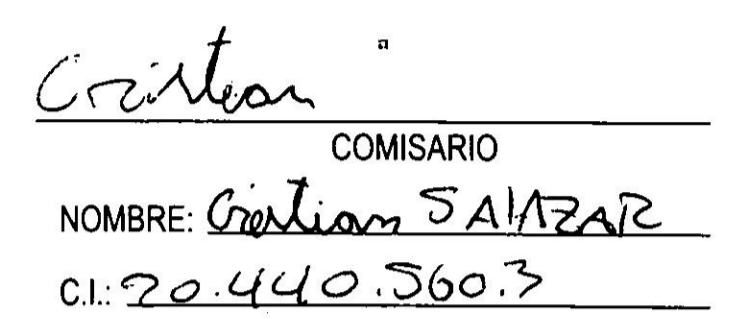 Cristian
COMISARIO
NOMBRE: Cristian SALAZAR
C.I.: 20.440.560.3